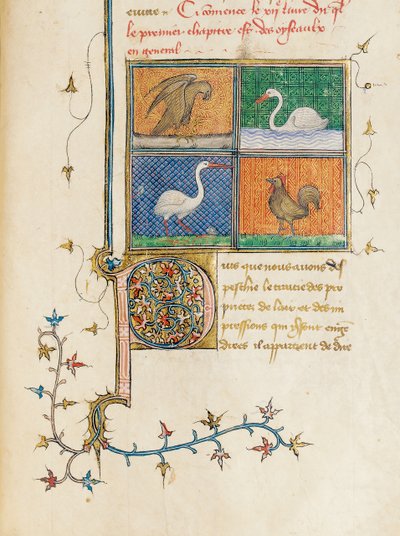 enivre Cy comence le xii livre du ql
le premier chapitre est des oyseaulx
en general
Puis que nous avons des
peschie le traictie des pro
prietez de lair et des im
pressions qui y sont engẽ
drees il appartient de dire